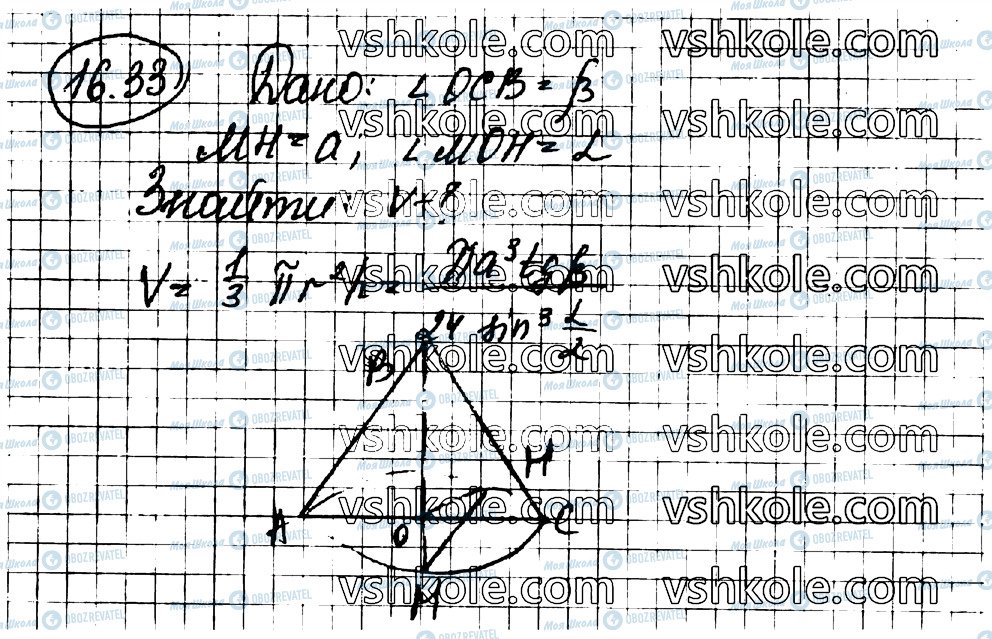 16.33 Дано: ∠OCB = β
MH = a; ∠MOH = α
Знайти: V - ?
V = 1/3 πr²h = πa³tgβ / 24 sin³ α/2
B
H
A O C
M
vshkole.com vshkole.com
vshkole.com vshkole.com
vshkole.com vshkole.com
vshkole.com vshkole.com
vshkole.com vshkole.com
vshkole.com vshkole.com
vshkole.com vshkole.com
vshkole.com vshkole.com
Моя Школа OBOZREVATEL